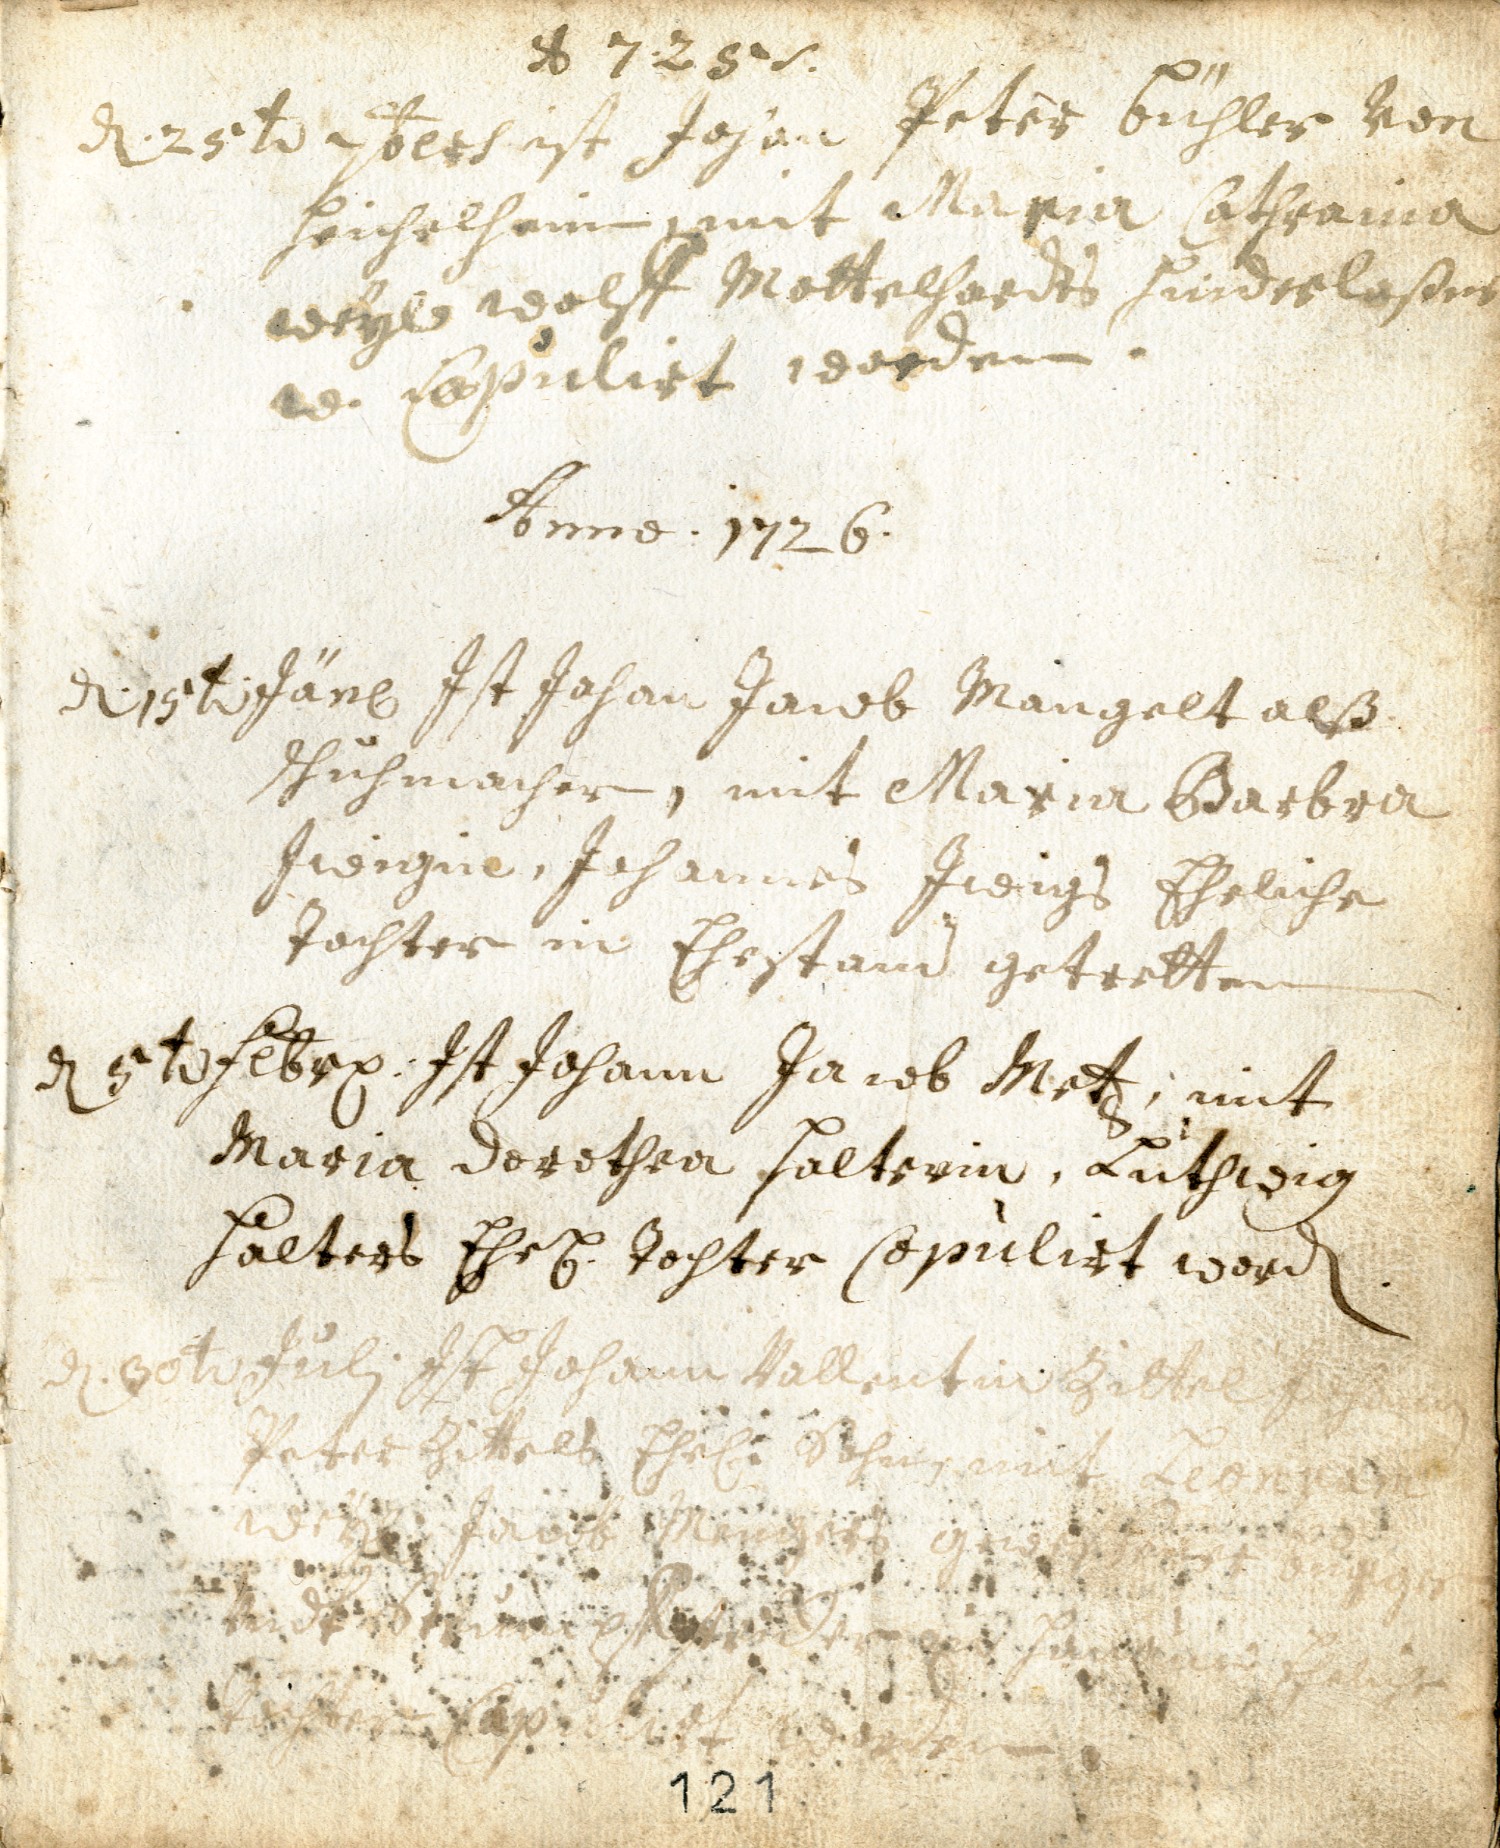 1725
d. 25t. 9bris ist Johan Peter Bühler von
Heichelheim, mit Maria Cathraina
weyl. wolff Mottelhardts Hinderlaßne
w. Copulirt worden.
Anno. 1726.
d. 15t. Jäner Ist Johan Jacob Mangelt alß
schuhmacher, mit Maria Barbra
Johannes Eheliche
Tochter in Ehestand getretten
d 5t. Febrx. Ist Johann Jacob Metz, mit
Maria dorothea Halterin, Luthwig
Halters Ehel. Tochter Copulirt word.
d. 30t. Julj Ist Johann Vallentin Zittel Johann
Peter Zittels Ehel. Sohn, mit
weyl. Jacob
Eheliche
tochter Copulirt worden
121